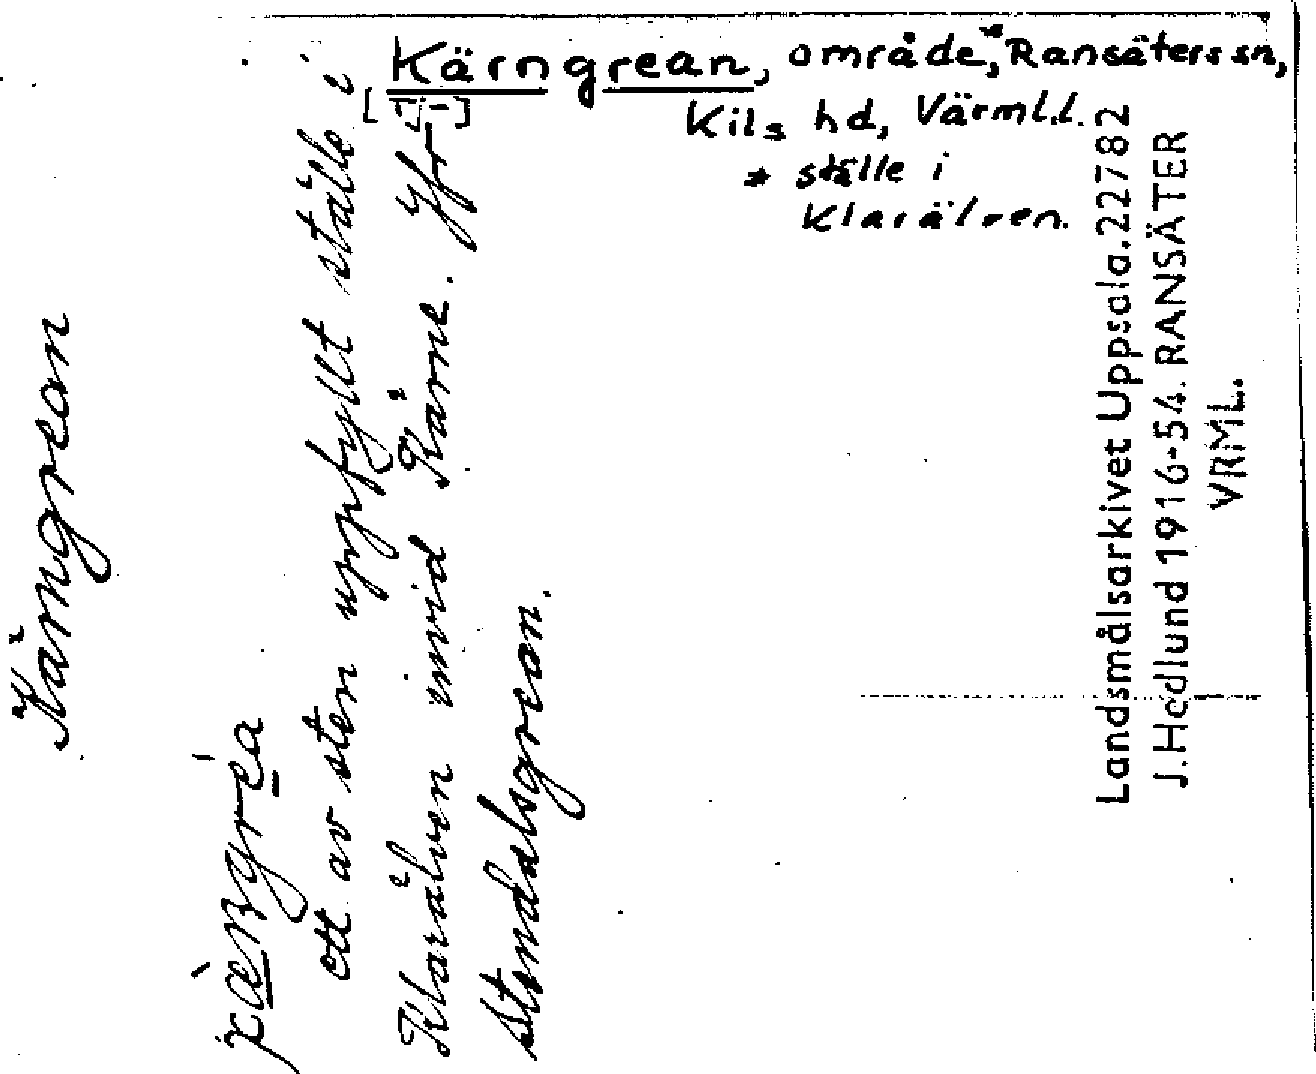 Kärngrean, område,* Ransäters sn,
[ ] [ – ]
Kils hd, Värml.l.
* ställe i
Klarälven.
Kärngrean
ett av sten uppfyllt ställe i
Klarälven invid Kärne. Jfr
Stendalsgrean.
Landsmålsarkivet Uppsala. 22782
J. Hedlund 1916-54. RANSÄTER
VRML.